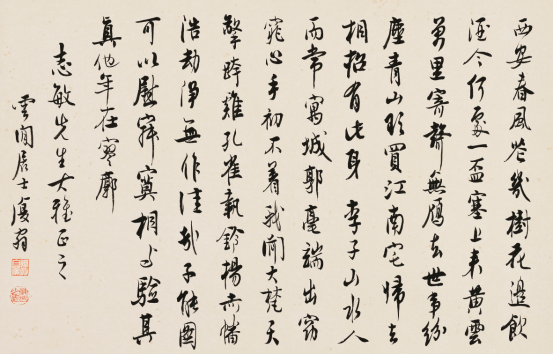 西安春風花幾樹花邊飲
酒今何處一盃塞上看黄雲
萬里寄聲無鴈去世事紛
塵青山欲買江南宅歸去
相招有此身 李子山水人
而常寓城郭毫端出窈
窕心手初不着我聞大梵天
擎跨雞孔雀執鈴揚赤幡
浩劫淨無作佳哉子能圖
可以慰寂寞相與驗其
真他年在寥廓
志敏先生大雅正之
雲間居士復翁